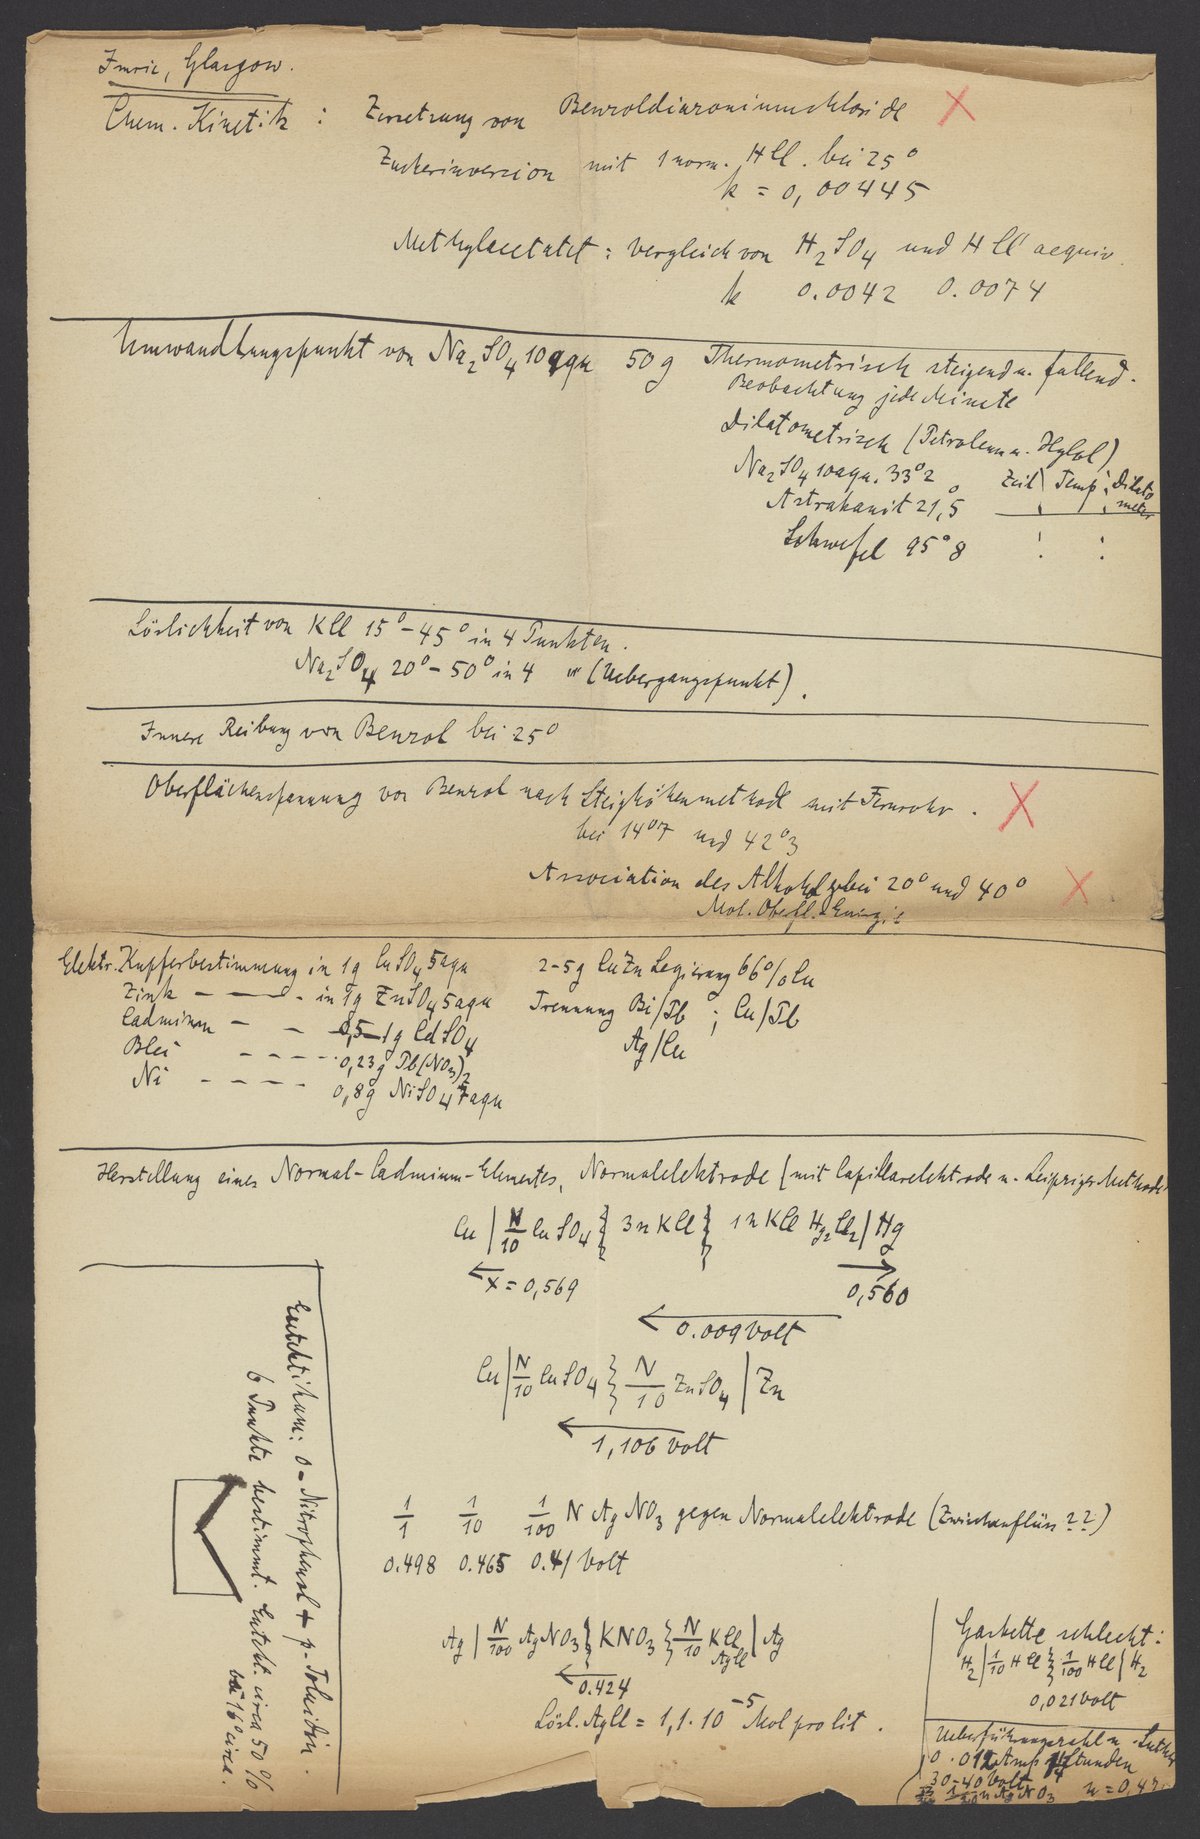 Imrie, Glasgow.
Chem. Kinetik : Zersetzung von Benzoldiazoniumchloride
Zuckerinversion mit 1 norm. HCl. bei 25°
k = 0,00445
Methylacetatet : Vergleich von H2SO4 und HCl aequiv.
k 0.0042 0.0074
Umwandlungspunkt von Na2SO4 10 aqu 50 g Thermometrisch steigend u. fallend.
Beobachtung jede Minute
Dilatometrisch (Petroleum u. Xylol)
Na2SO4 10 aqu. 33°2
Astrakanit 21,°5
Schwefel 95°8
Zeit Temp. Dilato
meter
Löslichkeit von KCl 15° – 45° in 4 Punkten.
Na2SO4 20° – 50° in 4 " (Uebergangspunkt).
Innere Reibung von Benzol bei 25°
Oberflächenspannung von Benzol nach Steighöhenmethode mit Fernrohr.
bei 14°7 und 42°3
Association des Alkohols bei 20° und 40°
Mol. Oberfl. Energie
Elektr. Kupferbestimmung in 1g CuSO4 5 aqu 2-5 g CuZn Legierung 66% Cu
Zink – – – in 1g ZnSO4 5 aqu Trennung Bi/Pb ; Cu/Pb
Cadmium – – 0,5–1g CdSO4 Ag/Cu
Blei – – – – 0,23g Pb(NO3)2
Ni – – – – 0,8g NiSO4 7 aqu
Herstellung eines Normal-Cadmium-Elementes, Normalelektrode (mit Capillarelektrode u. Leipziger Methode
Cu | N/10 CuSO4 } 3n KCl } 1n KCl Hg2Cl2 | Hg
x = 0,569 0,560
0.009 Volt
Cu | N/10 CuSO4 } N/10 ZnSO4 | Zn
1,106 Volt
1/1 1/10 1/100 N AgNO3 gegen Normalelektrode (Zwischenflüss ??)
0.498 0.465 0.41 Volt
Ag | N/100 AgNO3 } KNO3 } N/10 KCl | Ag
AgCl
0.424
Lösl. AgCl = 1,1·10⁻⁵ Mol pro lit.
Eutektikum: o-Nitrophenol + p-Toluidin.
6 Punkte bestimmt. Eutekt. circa 50%
bei 16° circa.
Gaskette schlecht:
H2 | 1/10 HCl } 1/100 HCl | H2
0,021 Volt
Ueberführungszahl n.
0.012 Amp Stunden
30-40 Volt
1/20 n AgNO3 n = 0,47